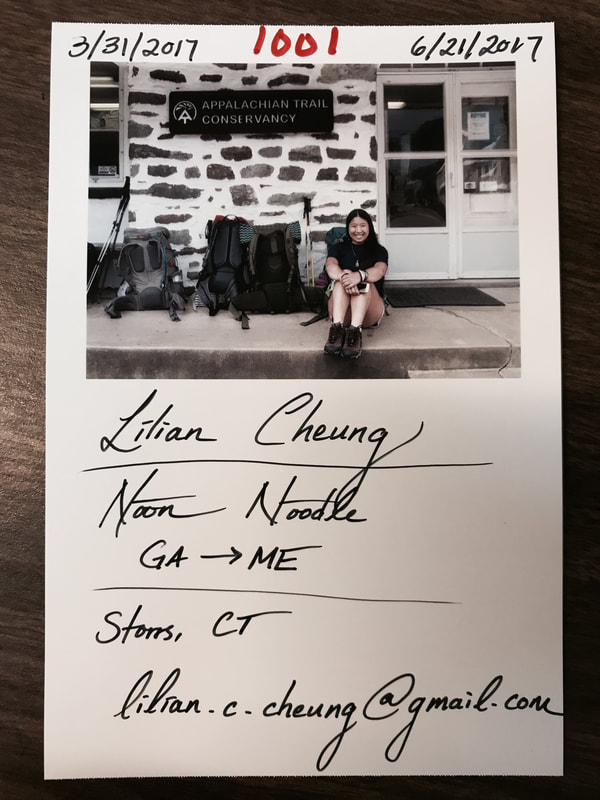 3/31/2017 1001 6/21/2017
APPALACHIAN TRAIL
CONSERVANCY
Lilian Cheung
Noon Noodle
GA → ME
Storrs, CT
lilian.c.cheung@gmail.com